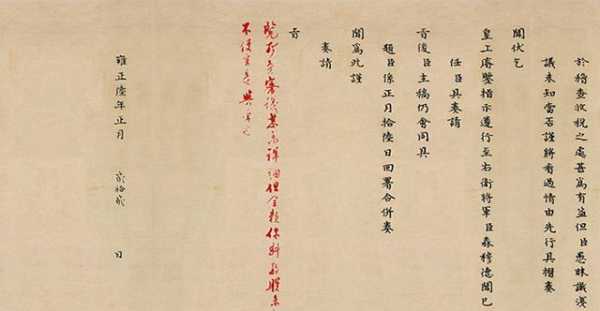 於稽查收税之處甚為有益但臣愚昧識淺
議未知當否謹將看過情由先行具摺奏
聞伏乞
皇上睿鑒指示遵行至右衛將軍臣森穆德聞已
任臣具奏請
旨後臣主稿仍會同具
題臣係正月拾陸日回署合併奏
聞為此謹
奏請
旨
覽所奏審議甚為詳細但全
不便
雍正陸年正月
日